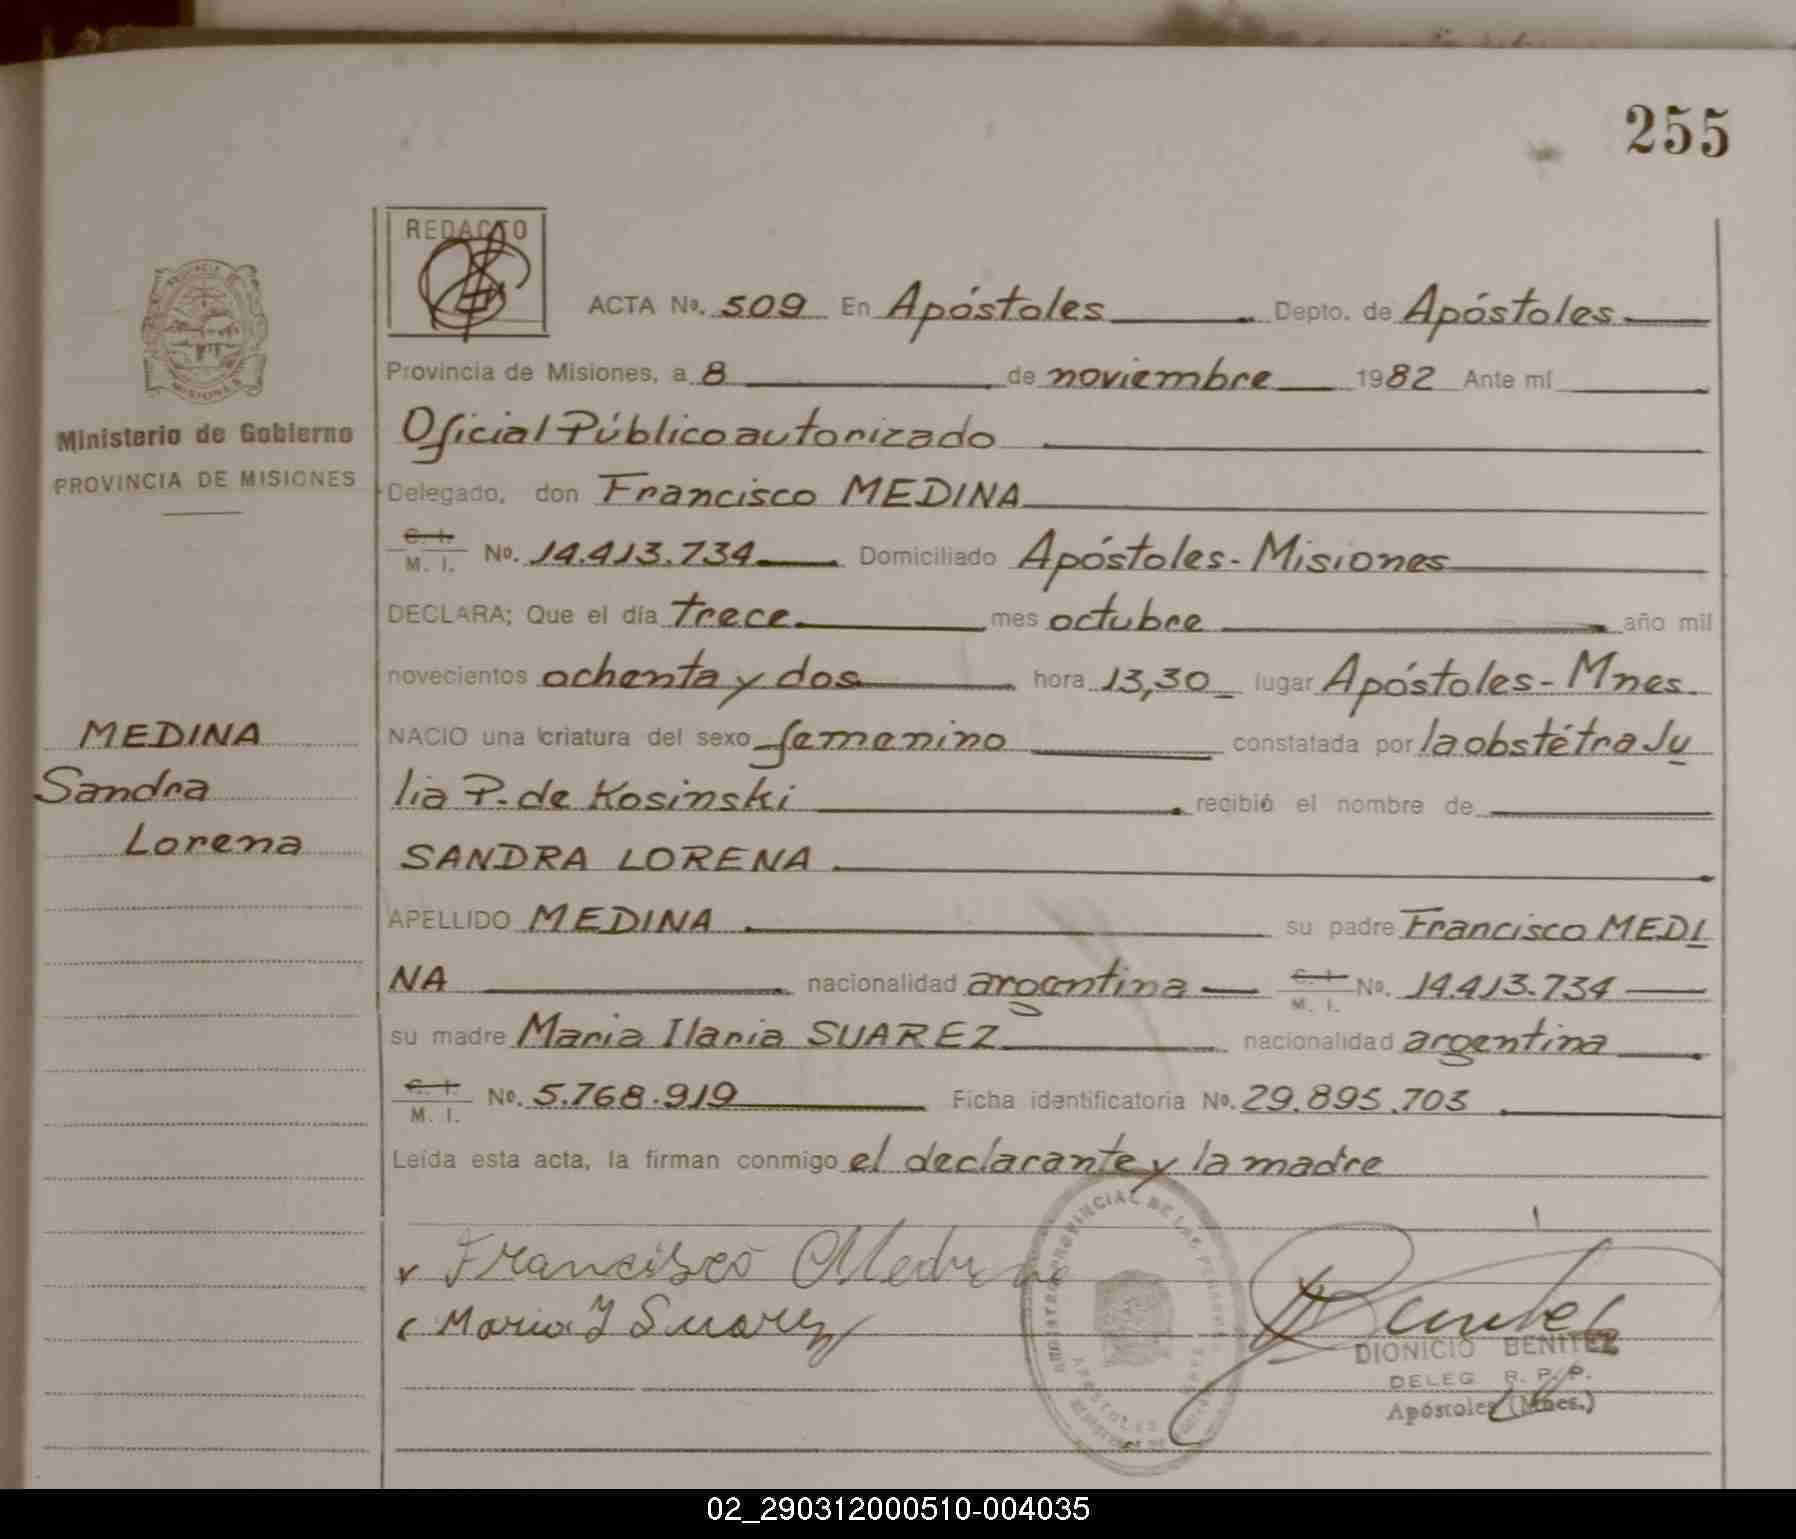 255
REDACTO
ACTA No. 509 En Apóstoles Depto. de Apóstoles
Provincia de Misiones, a 8 de noviembre 1982 Ante mí
Ministerio de Gobierno
PROVINCIA DE MISIONES
Oficial Público autorizado
Delegado, don Francisco MEDINA
C. I.
M. I. No. 14.413.734 Domiciliado Apóstoles - Misiones
DECLARA; Que el día trece mes octubre año mil
novecientos ochenta y dos hora 13,30 lugar Apóstoles - Mnes.
MEDINA
Sandra
Lorena
NACIO una criatura del sexo femenino constatada por la obstétra Ju
lia P. de Kosinski recibió el nombre de
SANDRA LORENA
APELLIDO MEDINA su padre Francisco MEDI
NA nacionalidad argentina C. I. M. I. No. 14.413.734
su madre Maria Ilaria SUAREZ nacionalidad argentina
C. I.
M. I. No. 5.768.919 Ficha identificatoria No. 29.895.703
Leída esta acta, la firman conmigo el declarante y la madre
Francisco Medina
Maria I Suarez
DIONICIO BENITEZ
DELEG R. P. P.
Apóstoles (Mnes.)
02_290312000510-004035